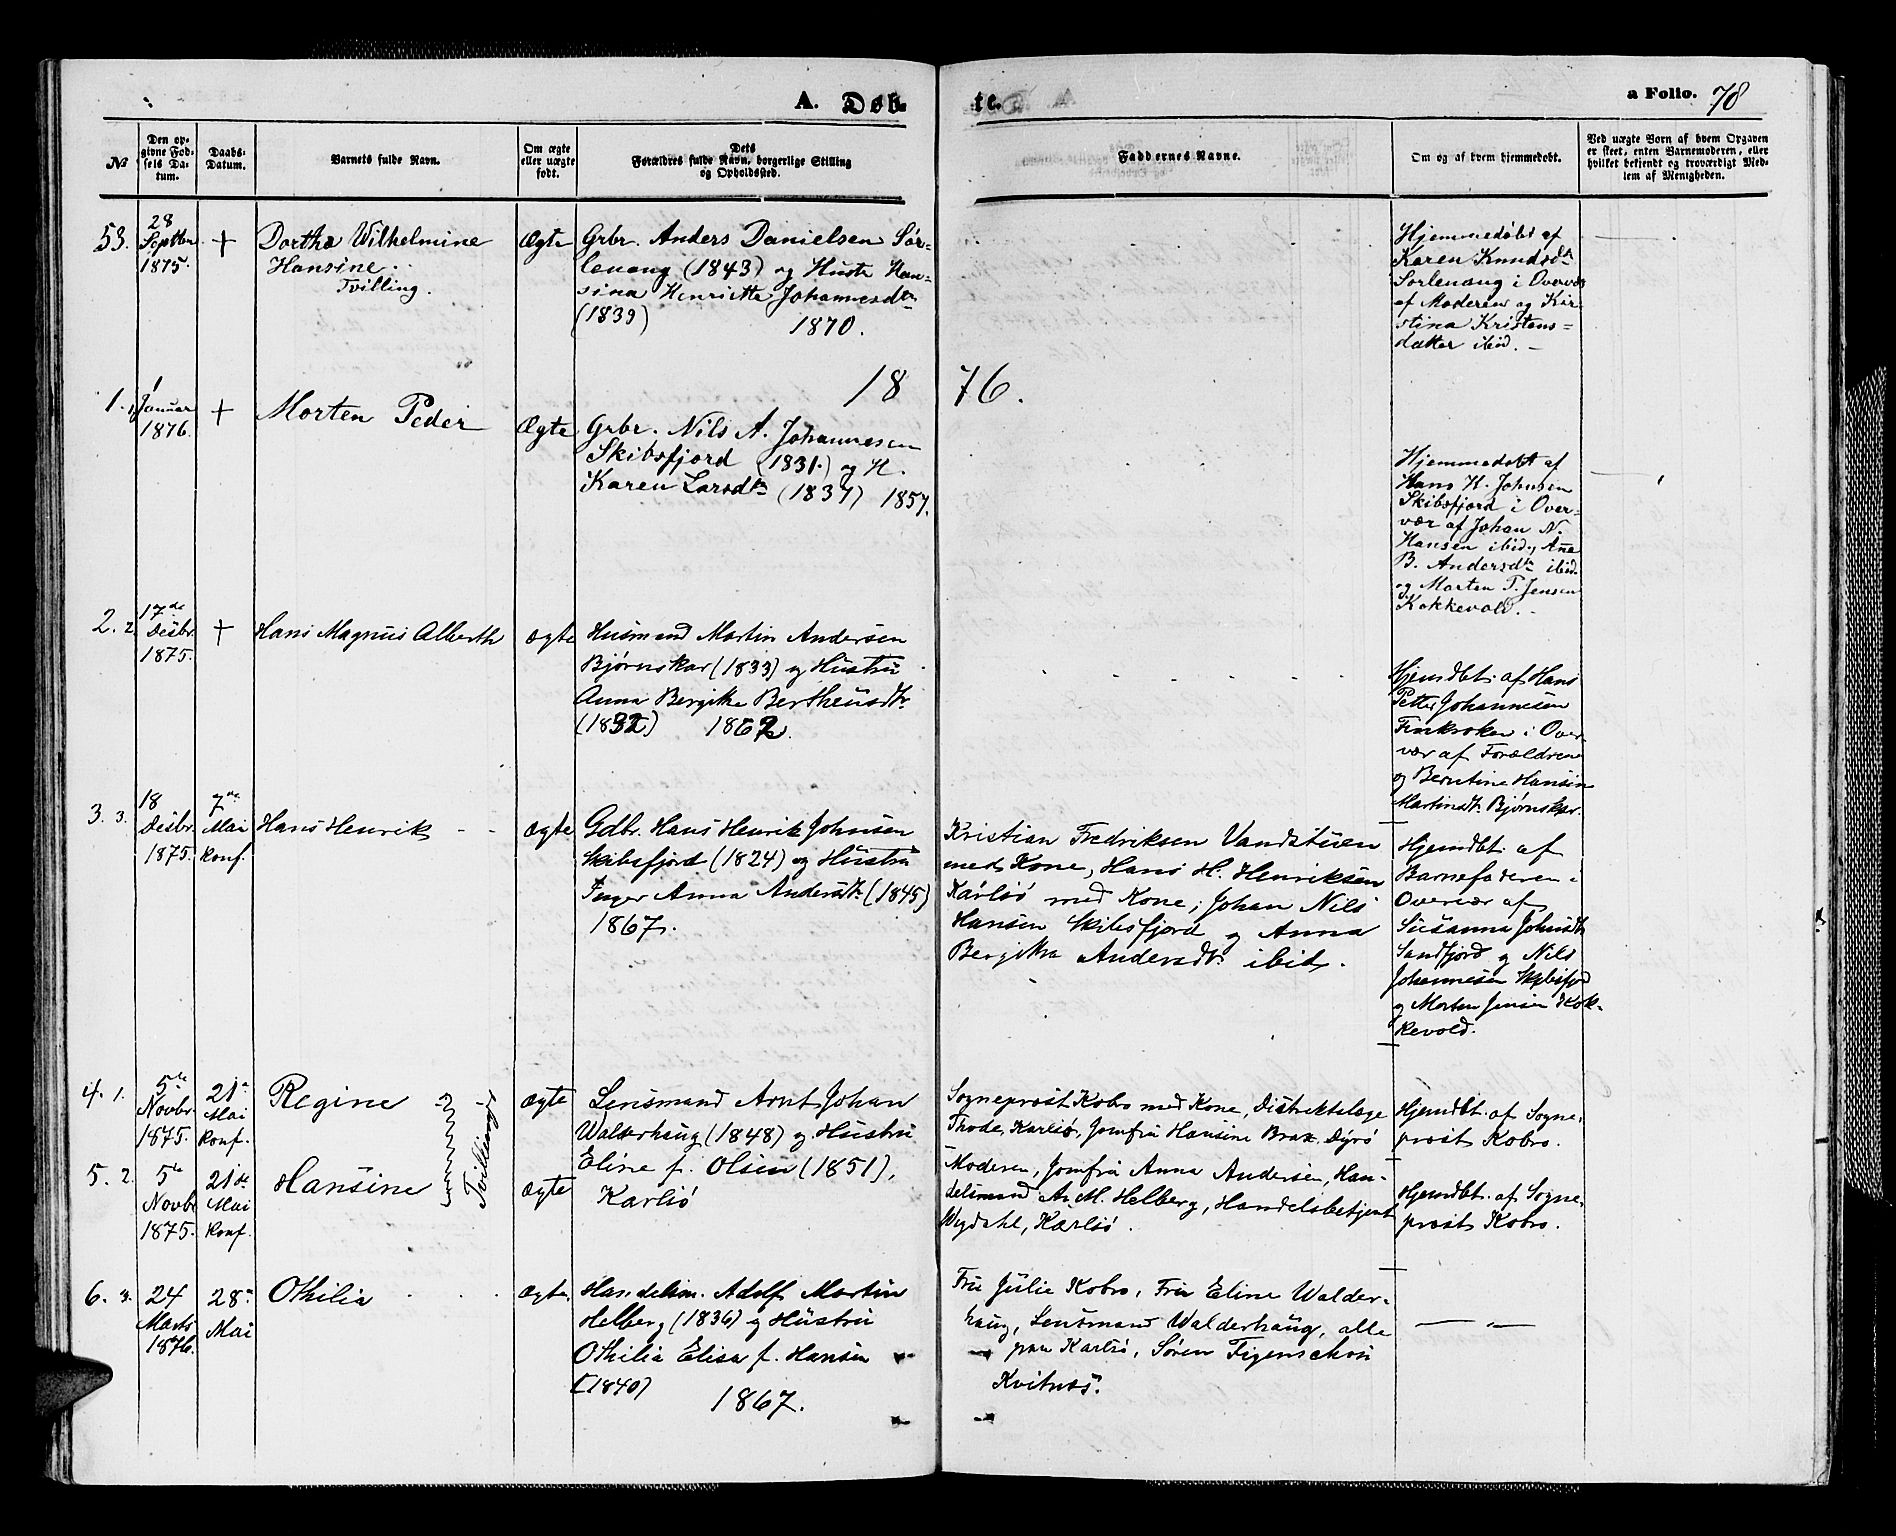 A. Døb-
te.
a Folio. 78
No
Den op-
givne Fød-
sels Da-
tum.
Daabs-
Datum.
Barnets fulde Navn.
Om ægte
eller uægte
født.
Dets
Forældres fulde Navn, borgerlige Stilling
og Opholdssted.
Faddernes Navne.
Om og af hvem hjemmedøbt.
Ved uægte Børn af hvem Opgaven
er skeet, enten Barnemoderen, eller
hvilket bekjendt og troværdigt Med-
lem af Menigheden.
53.
28
Septbr
1875.
+
Dorthe Wilhelmine
Hansine
Tvilling.
Ægte
Grbr. Anders Danielsen Sør-
lenang (1843) og Hustr Han-
sina Henriette Johannesdtr
(1839) 1870.
Hjemmedøbt af
Karen Knudsdtr
Sorlenang i Overvær
af Moderen og Kir-
stina Kristens=
datter ibid. —
1876.
1. 1.
1
Januar
1876.
+
Morten Peder
Ægte
Grbr. Nils A. Johannesen
Skibsfjord (1831.) og H.
Karen Larsdtr (1837) 1857.
Hjemmedøbt af
Hans H. Johnsen
Skibsfjord i Over-
vær af Johan N.
Hansen ibid, Ana
B. Andersdtr ibid.
og Morten P. Jensen
Kokkevold. -
2. 2.
17de
Desbr.
1875.
+
Hans Magnus Alberth
Ægte
Husmand Martin Andersen
Bjørnskar (1833) og Hustru
Anna Bergitha Bertheusdtr.
(1832) 1862.
Hjemdbt. af Hans
Petter Johannesen
Finkroken i Over-
vær af Forældrene
og Berntine Hansine
Martinsdtr. Bjørnskar.
3. 3.
18
Desbr.
1875.
7de
Mai
Konf.
Hans Henrik
Ægte
Gdbr. Hans Henrik Johnsen
Skibsfjord (1824) og Hustru
Inger Anna Andersdtr. (1845)
1867.
Kristian Fredriksen Vandstuen
med Kone, Hans H. Henriksen
Karlsö med Kone, Johan Nils
Hansen Skibsfjord og Anna
Bergitha Andersdtr. ibid.
Hjemdbt. af
Barnefaderen i
Overvær af
Susanna Johnsdtr
Sandfjord og Nils
Johannesen Skibsfjord
og Morten Jensen Kok-
kevold.
4. 1.
5te
Novbr
1875.
21de
Mai
Konf.
Regine
Tvillinger
Ægte
Lensmand Arnt Johan
Walderhaug (1848) og Hustru
Eline f. Olsen (1851),
Karlsö
Sogneprost Kobro med Kone, Distriktslæge
Thode, Karlsö, Jomfru Hansine Brax, Dyrö
Hjemdbt. af Sogne-
prost Kobro.
5. 2.
5te
Novbr
1875.
21de
Mai
Konf.
Hansine
Ægte
Moderen, Jomfru Anna Andersen, Han-
delsmand A. M. Helberg, Handelsbetjent
Wejdahl, Karlsö.
Hjemdbt. af Sogne-
prost Kobro.
6. 3.
24
Marts
1876.
28de
Mai
Othilia
Ægte.
Handelsm. Adolf Martin
Helberg (1836) og Hustru
Othilia Elisa f. Hansen
(1840) 1867.
Fru Julie Kobro, Fru Eline Walder-
haug, Lensmand Walderhaug, alle
paa Karlsö, Søren Figenschou
Kvitnæs.
— „ —